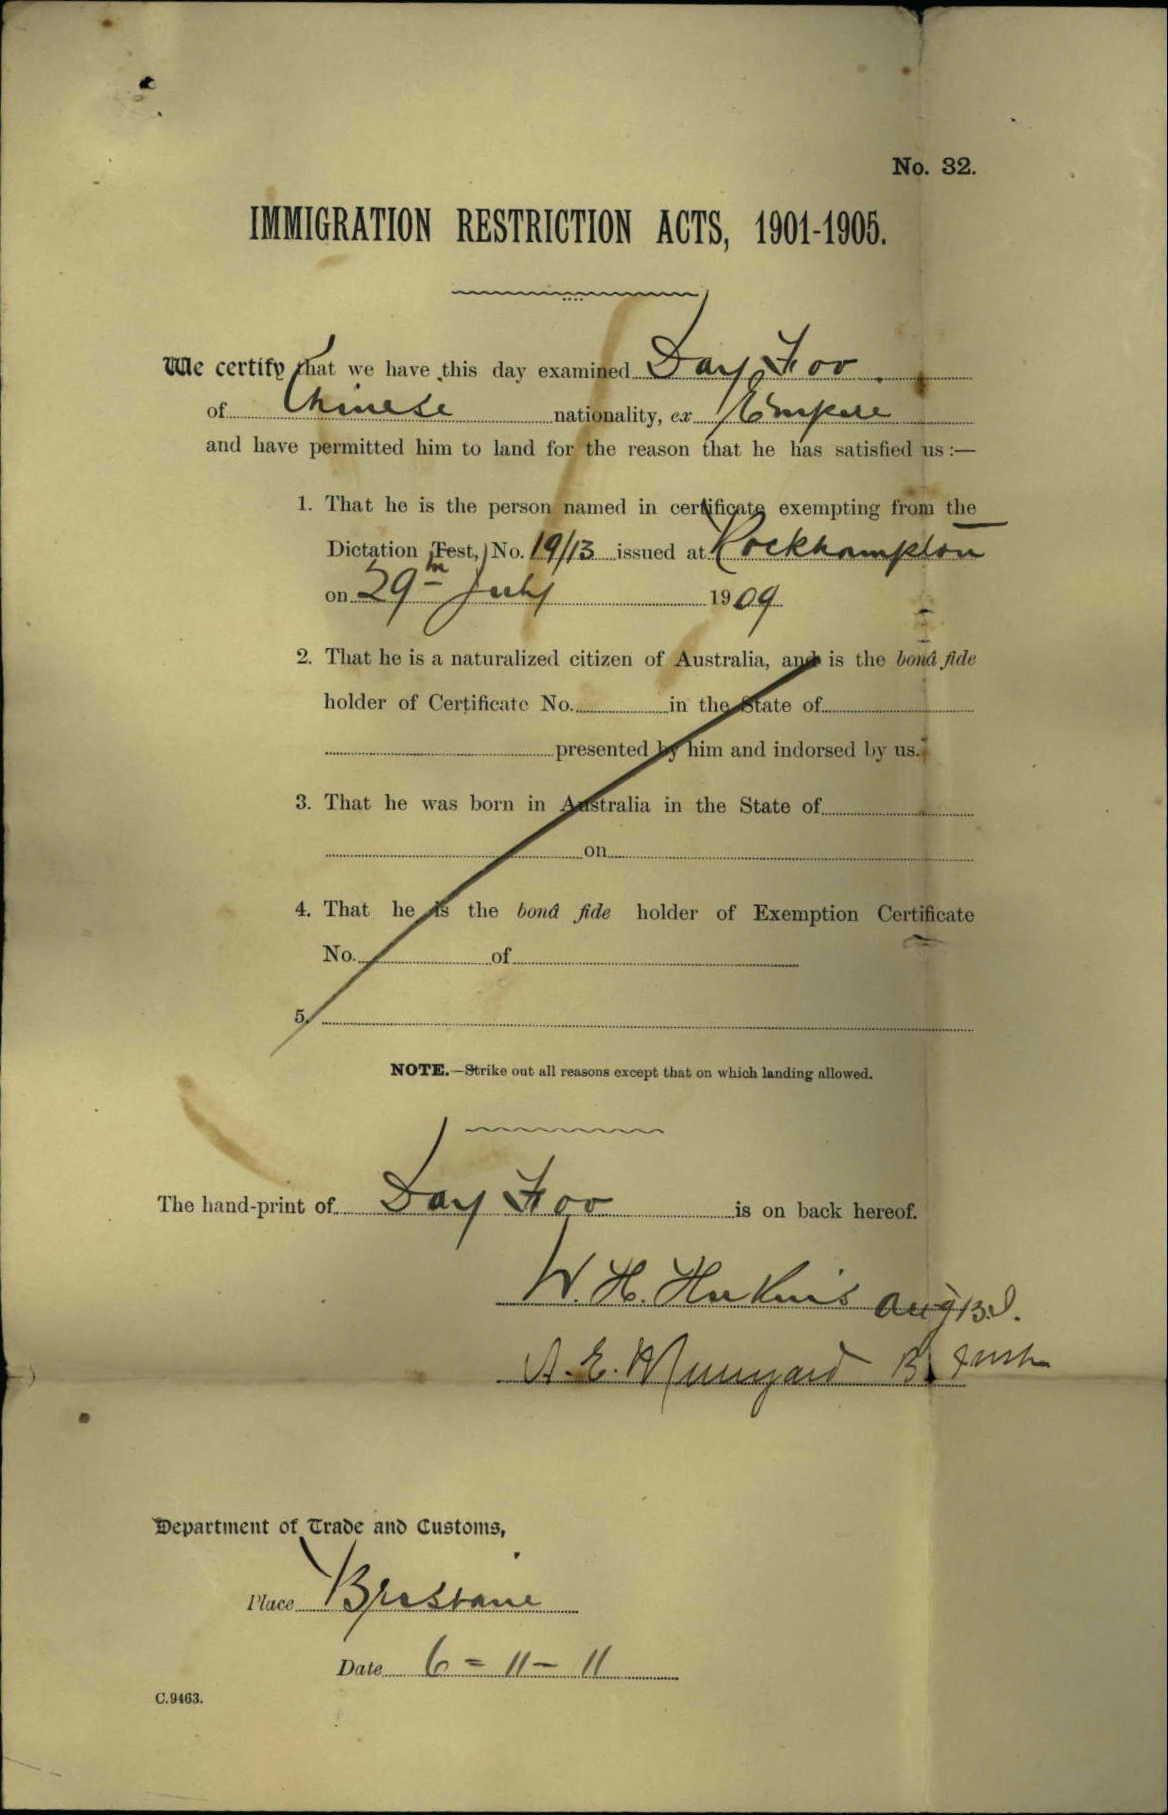 No. 32.
IMMIGRATION RESTRICTION ACTS, 1901-1905.
We certify that we have this day examined Day Foo
of Chinese nationality, ex Empire
and have permitted him to land for the reason that he has satisfied us :—
1. That he is the person named in certificate exempting from the
Dictation Test, No. 19/13 issued at Rockhampton
on 29th July 1909
2. That he is a naturalized citizen of Australia, and is the bonâ fide
holder of Certificate No. in the State of
presented by him and indorsed by us.
3. That he was born in Australia in the State of
on
4. That he is the bonâ fide holder of Exemption Certificate
No. of
5.
NOTE.—Strike out all reasons except that on which landing allowed.
The hand-print of Day Foo is on back hereof.
W. H.
A. E.
Department of Trade and Customs,
Place Brisbane
Date 6 = 11 - 11
C.9463.